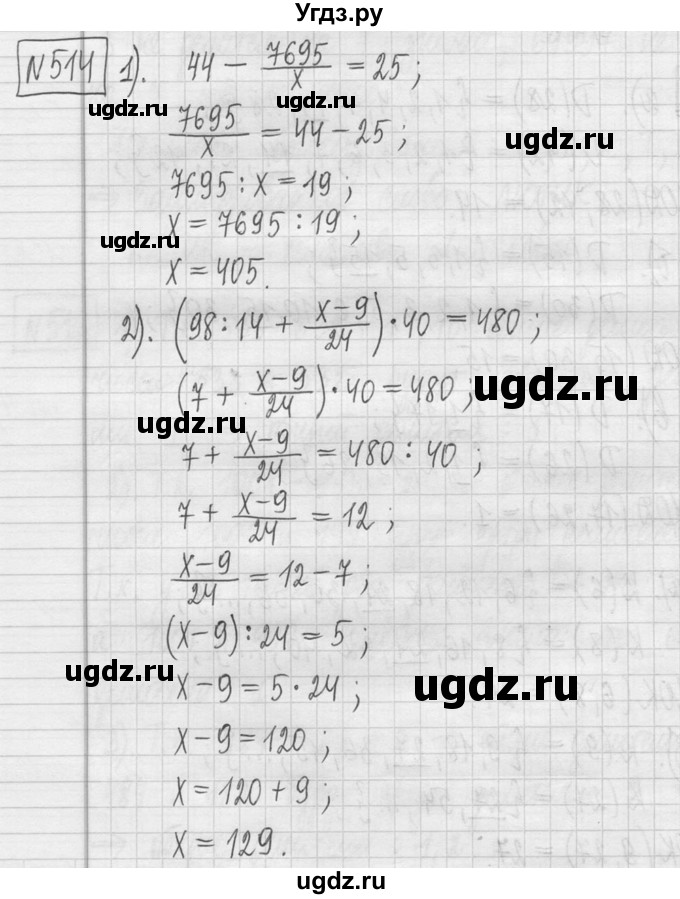 Угдз.ру
№514 1). 44 - 7695/x = 25;
7695/x = 44 - 25;
7695 : x = 19;
x = 7695 : 19;
x = 405.
2). (98 : 14 + (x-9)/24) · 40 = 480;
(7 + (x-9)/24) · 40 = 480;
7 + (x-9)/24 = 480 : 40;
7 + (x-9)/24 = 12;
(x-9)/24 = 12 - 7;
(x-9) : 24 = 5;
x - 9 = 5 · 24;
x - 9 = 120;
x = 120 + 9;
x = 129.
ugdz.ru
ugdz.ru
ugdz.ru
ugdz.ru
ugdz.ru
ugdz.ru
ugdz.ru
ugdz.ru
ugdz.ru